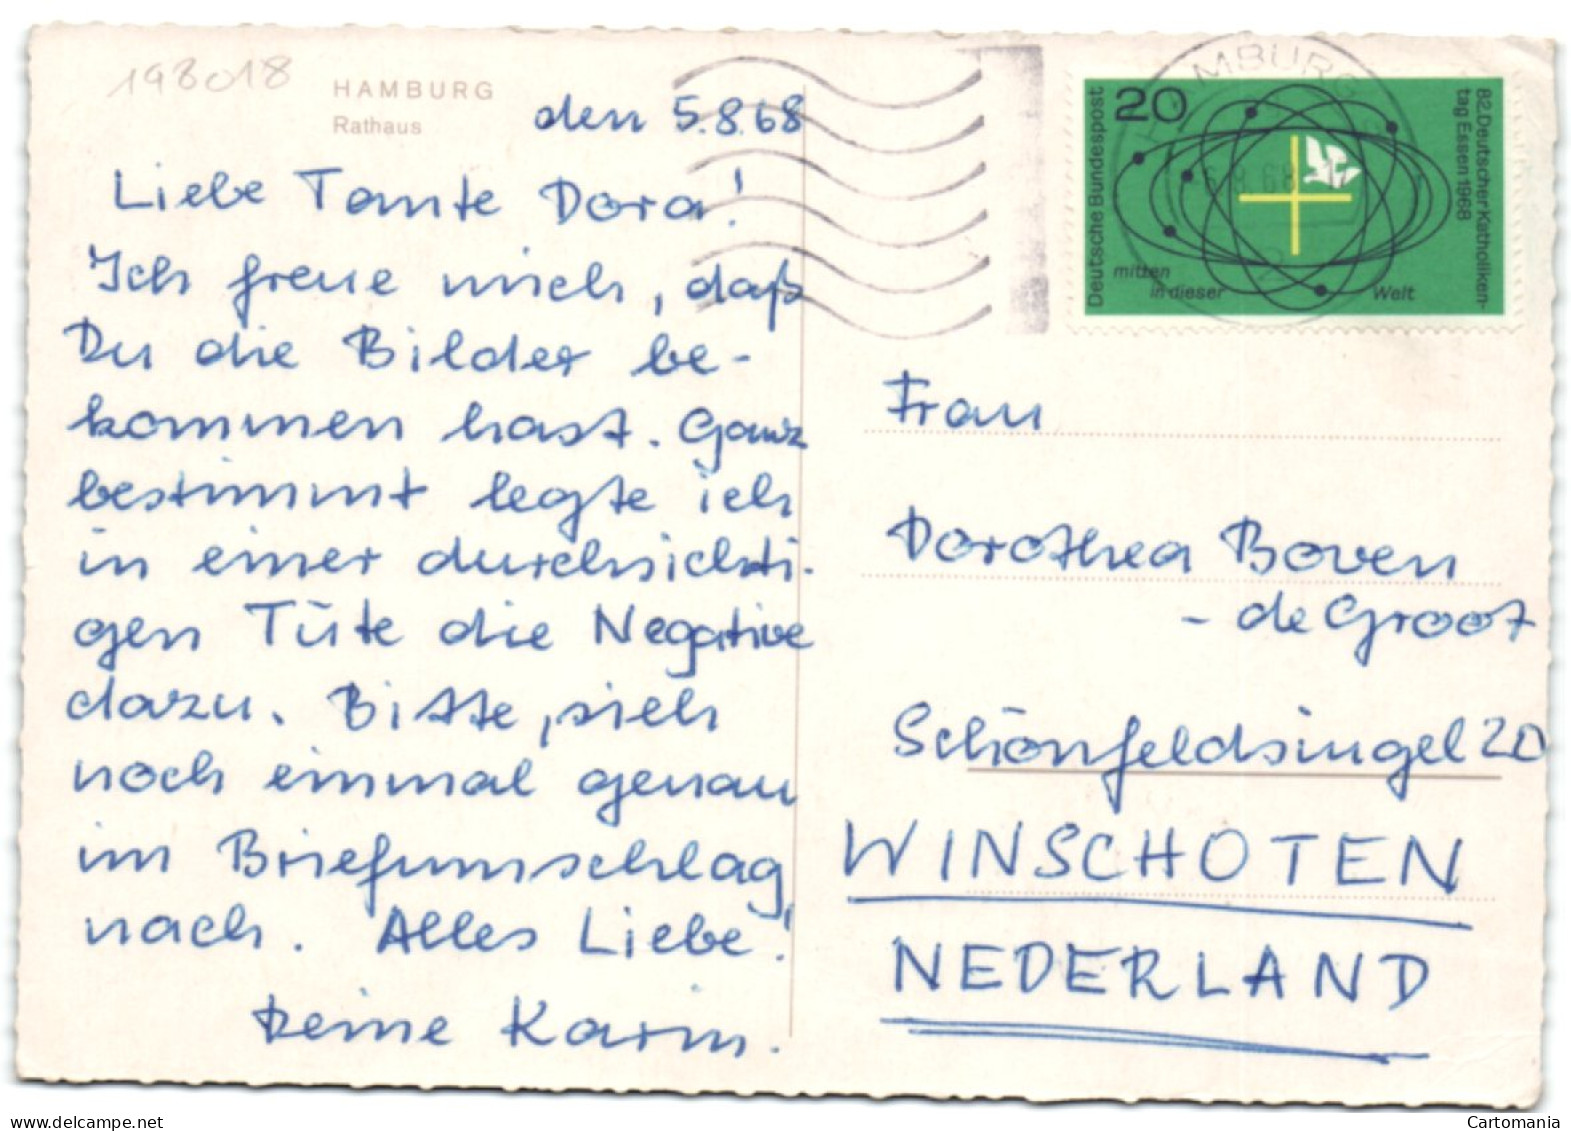 198018
HAMBURG
Rathaus
den 5.8.68
Liebe Tante Dora!
Ich freue mich, daß
Du die Bilder be-
kommen hast. Ganz
bestimmt legte ich
in einer durchsichti-
gen Tüte die Negative
dazu. Bitte, sieh
noch einmal genau
im Briefumschlag
nach. Alles Liebe!
Deine Karin.
HAMBURG
20
Deutsche Bundespost
82. Deutscher Katholiken-
tag Essen 1968
mitten
in dieser
Welt
Frau
Dorothea Boven
- de Groot
Schönfeldsingel 20
WINSCHOTEN
NEDERLAND
www.delcampe.net
Cartomania